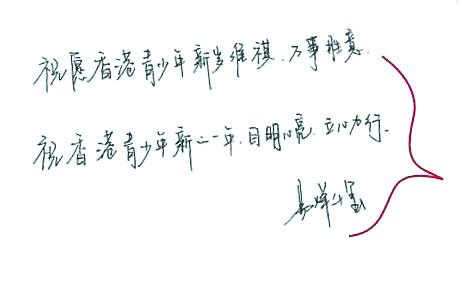 祝愿香港青少年新岁维祺.万事胜意.
祝香港青少年新二一年.目明心亮.立心力行.